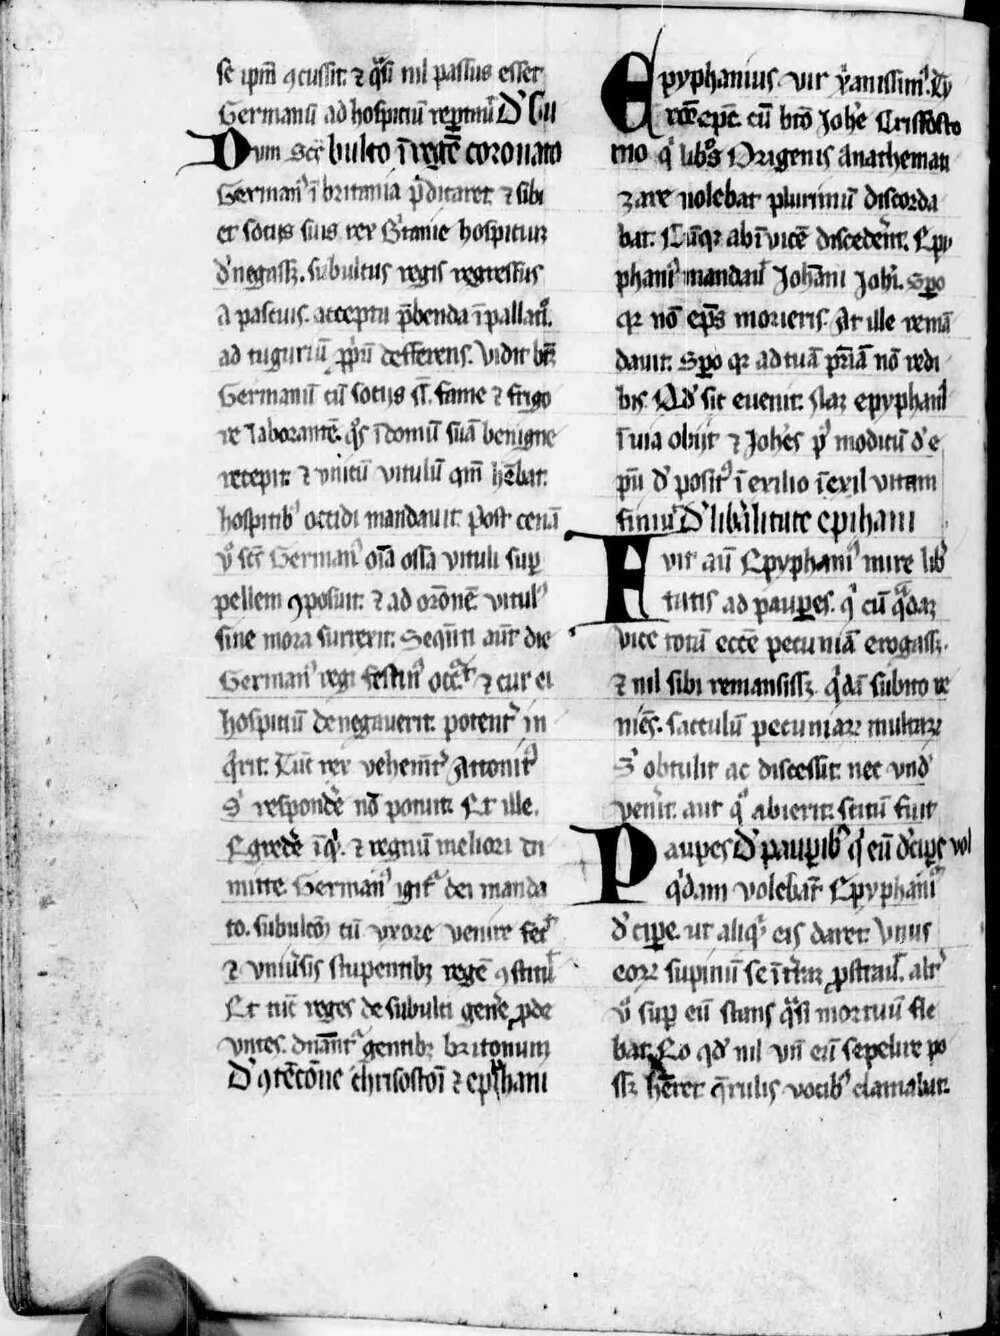 se ipm ꝯcussit. ⁊ qͣsi nil passus esset
Germanū ad hospiciū
Dum scs bulco ī regē coronato
Germanꝰ ī britania p̄dicaret. ⁊ sibi
et sociis suis rex hospicium
d'negassꝫ. subulcus regis regressus
a pascuis. accepta p̄benda ī pallacio.
ad tuguriū deferens. Vidit
Germanū cū sociis fame ⁊ frigo
re laborantē. qͦs ī domū suā benigne
recepit. ⁊ vnicū vitulū qm hēbat.
hospitibꝰ occidi mandauit. post cenā
vͦ scs Germanꝰ oīa ossa vituli suꝑ
pellem ꝯposuit. ⁊ ad orōnē vitulꝰ
sine mora surrexit. Sequēti aūt die
Germanꝰ regi ⁊ cur ei
hospiciū denegauerit. potenter in
q̄rit. Tūc rex vehemēter Attonitꝰ
Sͥ respondē nō potuit. Et ille.
Egredē ⁊ regnū meliori di
mitte. Germanꝰ igiꝉ dei manda
to. subulcū cū vxore venire fecit
⁊ vniuersis stupentibꝫ regē ꝯstituit
Et tūc reges de subulci genere ꝓde
untes. gentibꝫ britonum
D' ꝯtēcōne chrisostoī ⁊ epiphani
Epyphanius vir
epc. cū bto Johē Crisosto
mo qͥ libros Origenis Anathemati
zare nolebat plurimū discorda
bat. Cūqꝫ ab īvicē discederēt. Epy
phaniꝰ mandauit Johāni Spero
qꝛ nō eps morieris. At ille reman
dauit. Spero qꝛ ad tuā p̄riā nō redi
bis. Qd' sic euenit. Nam epyphaniꝰ
ī uia obiit ⁊ Johēs pꝰ modicū d' e
d' positꝰ ī exilio vitam
finiuit D' liberalitate epihani
Fuit aū Epyphaniꝰ mire libe
ralitatis ad pauꝑes. qͥ cū qͣdam
vice totū eccē pecuniā erogassꝫ.
⁊ nil sibi remansissꝫ. qͥdā subito ve
niēs. sacculū pecuniarum
Sͥ obtulit ac discessit. nec vnd'
venerit. aut qͦ abierit. scitū fuit
Pauꝑes D' pauꝑibꝰ qͥ eū d'ciꝑe vol
qͥdam volebāt Epyphaniū
d'ciꝑe. ut aliqͥ eis daret. Vnus
eorum supinū se ī terram ꝓstrauit. alter
vͦ suꝑ eū stans qͣsi mortuū fle
bat. Eo qd' nil vn̄ eū sepelire po
ssꝫ hēret q̄rulis vocibꝰ clamabat.